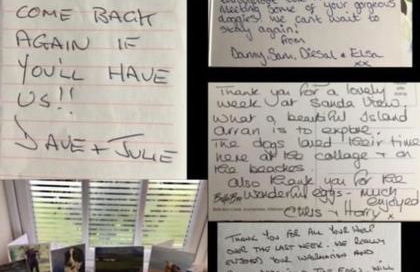 COME BACK
AGAIN IF
YOU'LL HAVE
US!!
DAVE + JULIE
meeting some of your gorgeous
doggies! We can't wait to
stay again!
from
Danny, Sam, Diesal & Elsa
xx
Thank you for a lovely
week at Sanda View.
What a beautiful Island
Arran is to explore.
The dogs loved their time
here at the cottage & on
the beaches.
Also thank you for the
wonderful eggs - much
enjoyed
Chris & Harry x
THANK YOU FOR ALL YOUR HELP
OVER THIS LAST WEEK. WE REALLY
ENJOYED YOUR AND